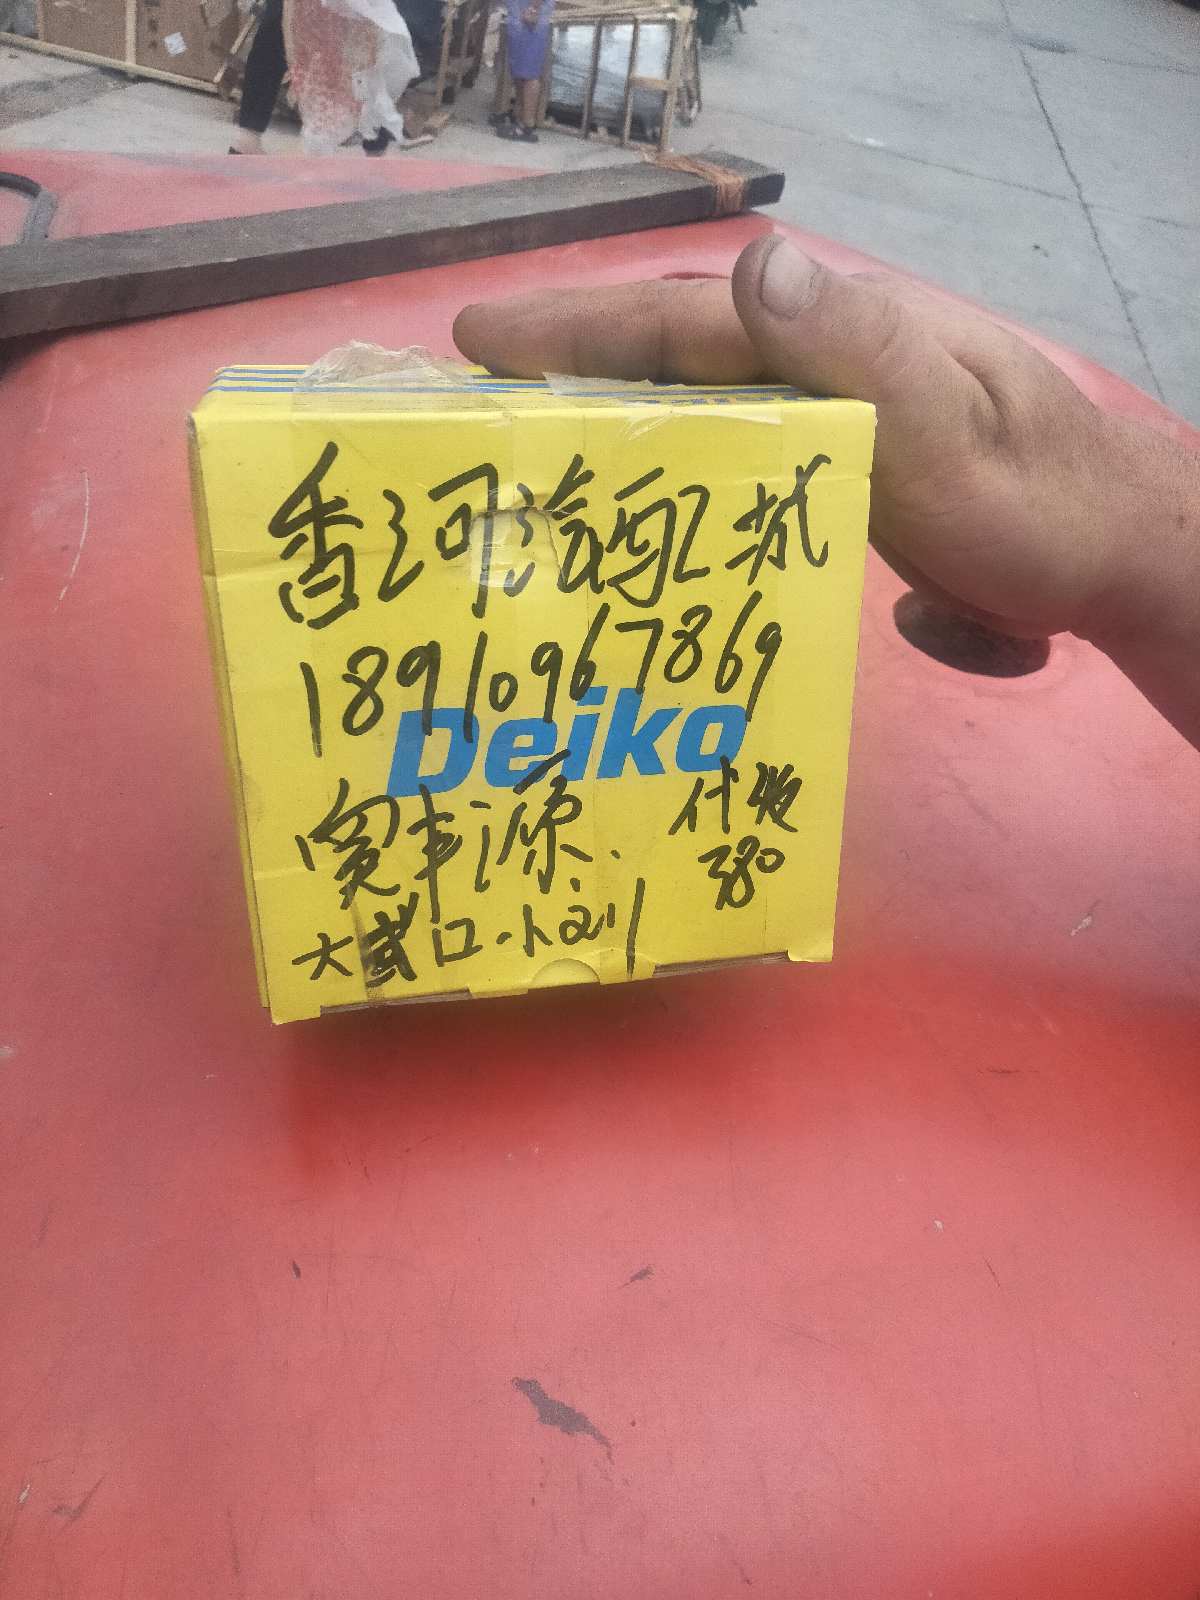 香河汽配城
18910967869
Deiko
窦丰源
代收
380
大武口·小刘